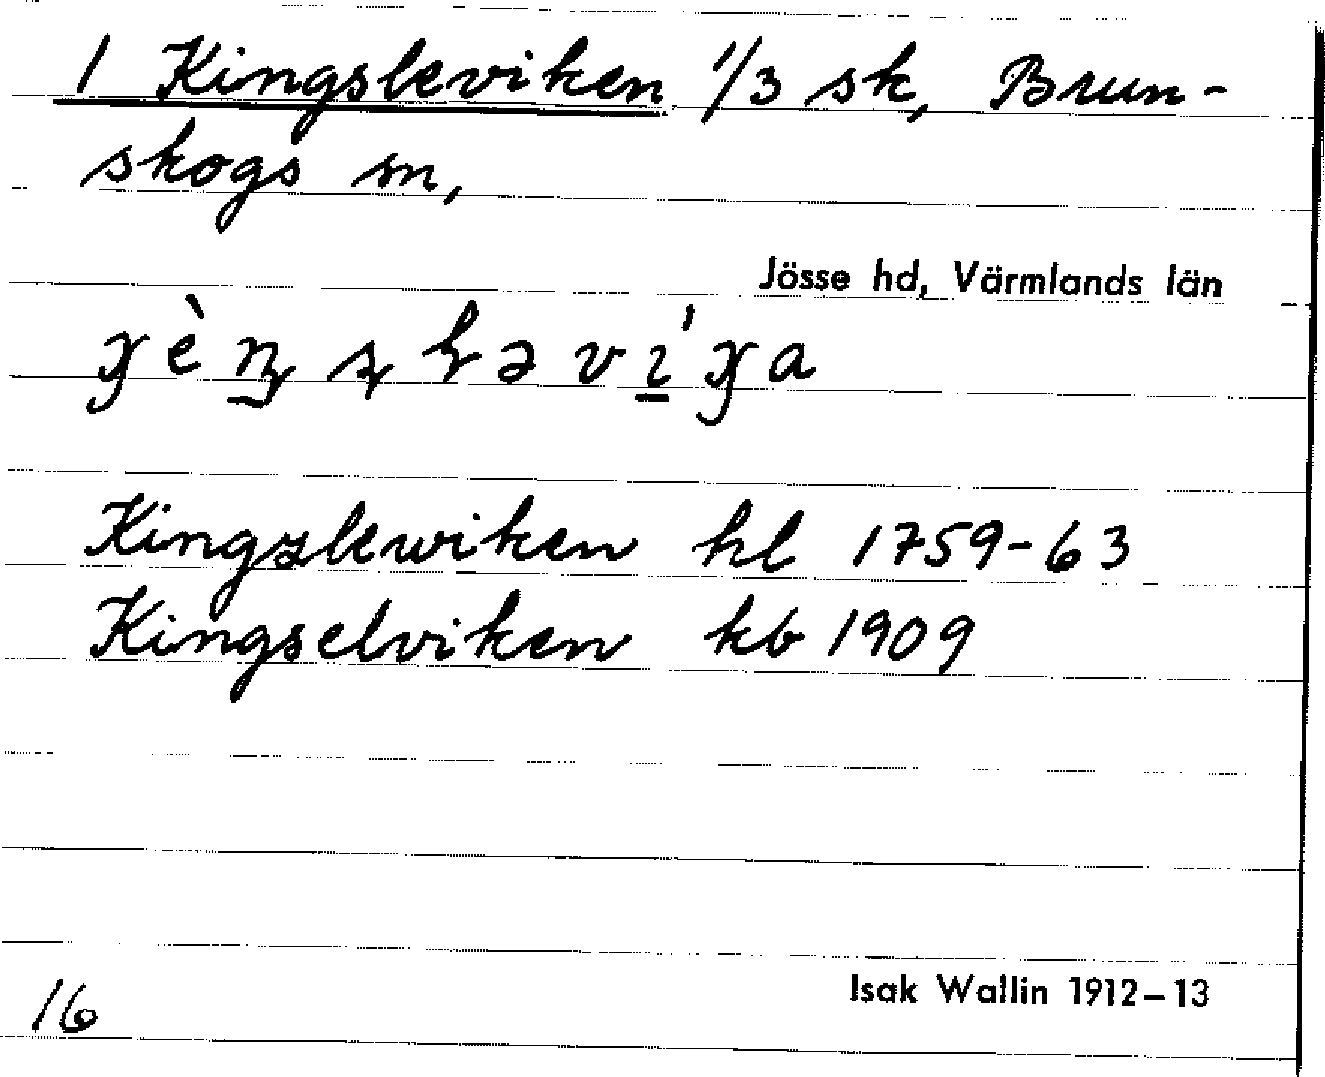 1 Kingsleviken 1/3 sk, Brun-
skogs sn,
Jösse hd, Värmlands län
Kingzlewiken hl 1759-63
Kingselviken kb 1909
16
Isak Wallin 1912-13